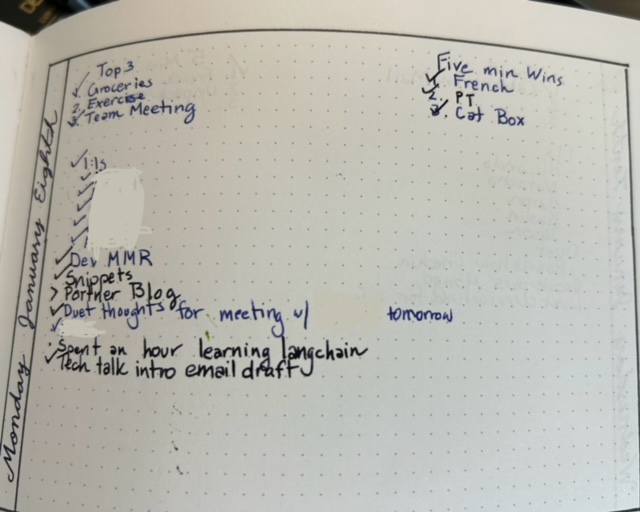 Monday January Eighth
Top 3
1. Groceries
2. Exercise
3. Team Meeting
Five min Wins
1. French
2. PT
3. Cat Box
1:1s
Dev MMR
Snippets
> Partner Blog
Duet thoughts for meeting w/ tomorrow
Spent an hour learning langchain
Tech talk intro email draft